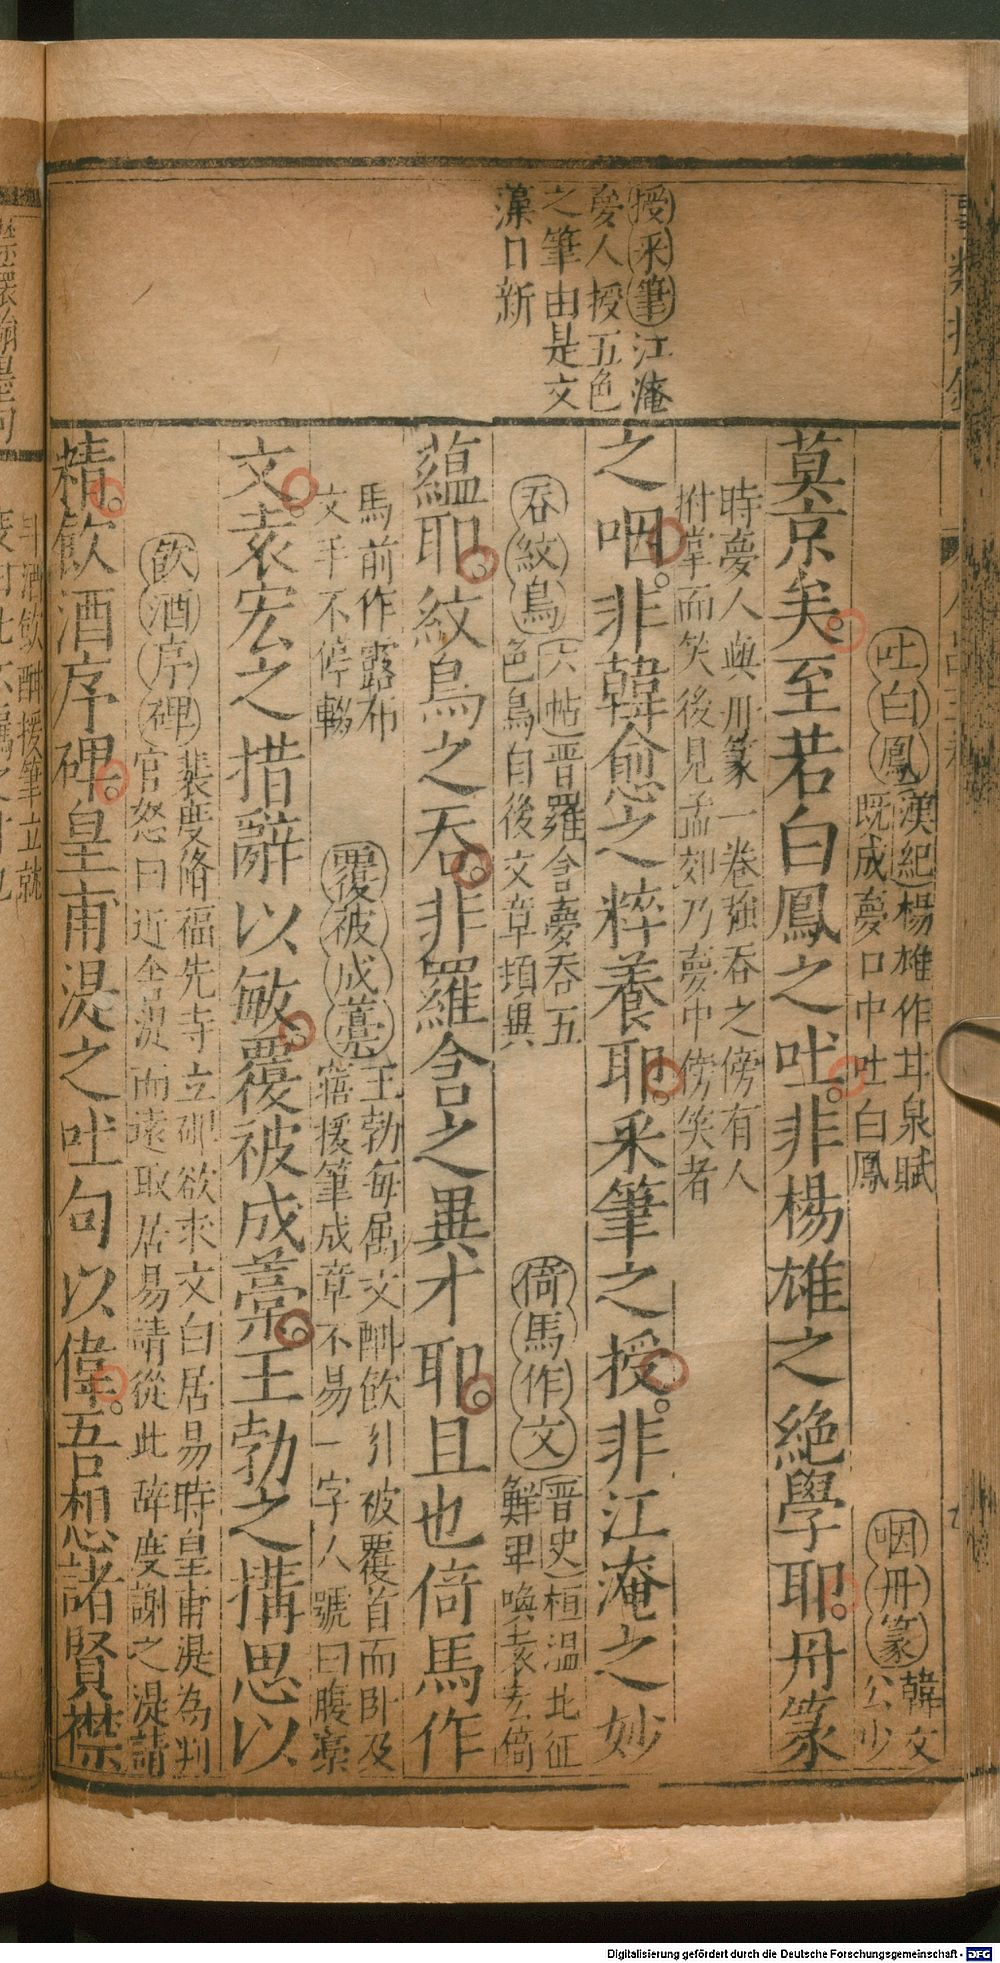 授采筆江淹
夢人授五色
之筆由是文
藻日新
吐白鳳（漢紀）楊雄作甘泉賦
既成夢口中吐白鳳
咽丹篆韓文
公少
莫京矣。至若白鳳之吐。非楊雄之絶學耶。丹篆
時夢人與丹篆一卷強吞之傍有人
拊掌而笑後見孟郊乃夢中傍笑者
之咽。非韓愈之粹養耶。采筆之授。非江淹之妙
吞紋鳥（六帖）晋羅含夢吞五
色鳥自後文章頓異
倚馬作文（晋史）桓溫北征
鮮卑喚袁宏倚
蘊耶。紋鳥之吞。非羅含之異才耶。且也倚馬作
馬前作露布
文手不停輟
覆被成藁王勃每属文酣飲引被覆首而卧及
寤援筆成章不易一字人號曰腹藁
文。袁宏之措辭以敏。覆被成藁。王勃之搆思以
飲酒序碑裴度脩福先寺立碑欲求文白居易時皇甫湜為判
官怒曰近舍湜而遠取居易請從此辞度謝之湜請
精。飲酒序碑。皇甫湜之吐句以偉。吾想諸賢襟
斗酒飲酣援筆立就
Digitalisierung gefördert durch die Deutsche Forschungsgemeinschaft - DFG